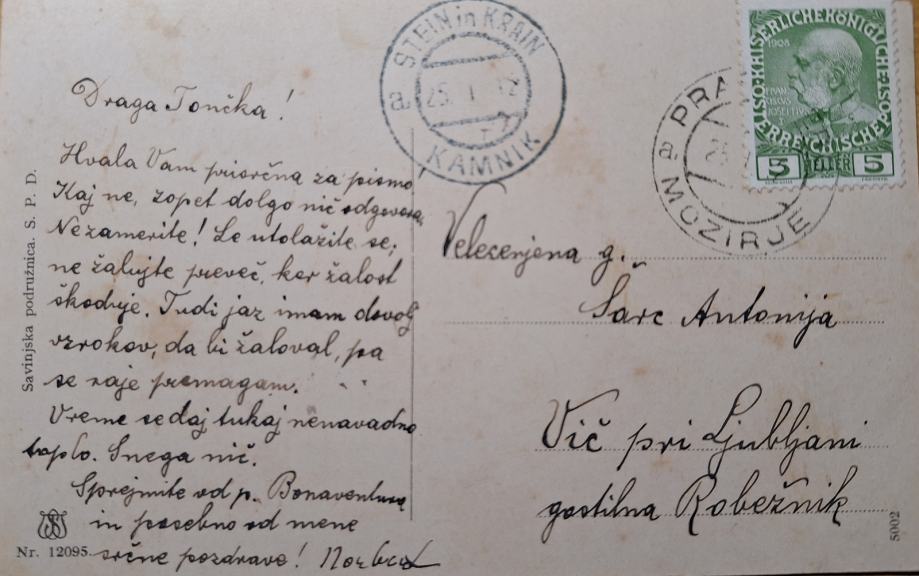 Draga Tončka!
Hvala Vam prisrčna za pismo.
Kaj ne, zopet dolgo nič odgovora.
Nezamerite! Le utolažite se;
ne žalujte preveč, ker žalost
škoduje. Tudi jaz imam dovolj
vzrokov, da bi žaloval, pa
se raje premagam.
Vreme sedaj tukaj nenavadno
toplo. Snega nič.
Sprejmite od p. Bonaventura
in posebno od mene
srčne pozdrave!
Savinjska podružnica. S. P. D.
Nr. 12095.
STEIN in KRAIN
a 25. I 12
KAMNIK
PRA
a
MOZIRJE
KAISERLICHE KÖNIGLICHE
ÖSTERREICHISCHE
1908
5 HELLER 5
Velecenjena g.
Šarc Antonija
Vič pri Ljubljani
gostilna Robežnik
5002